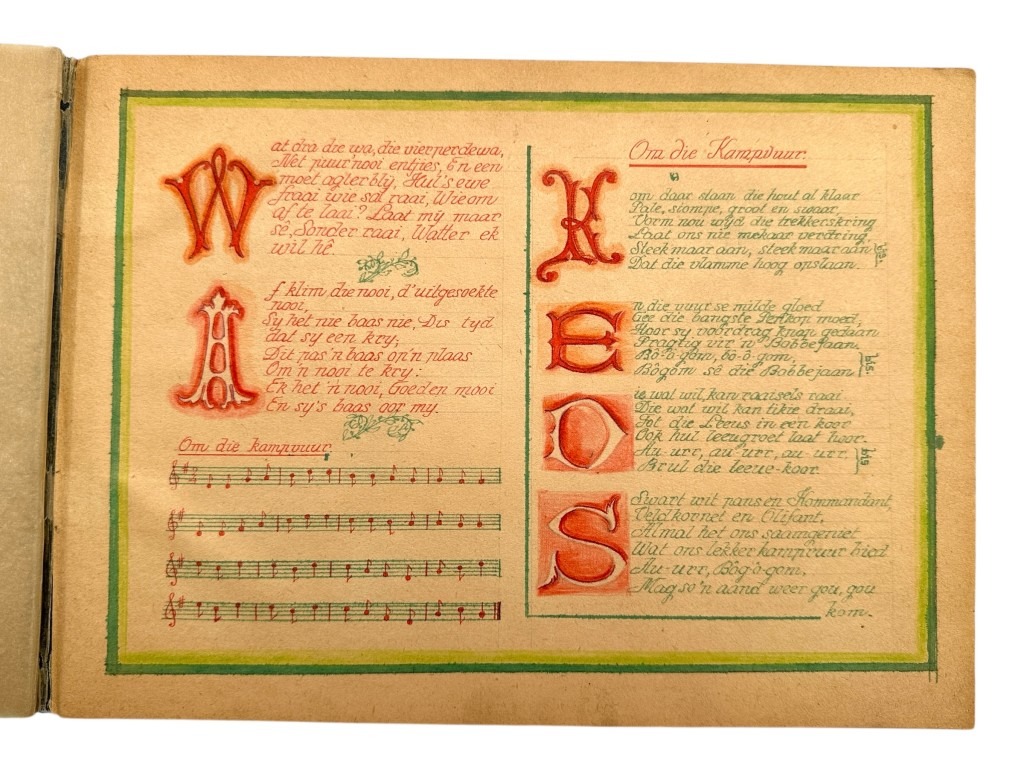 Wat dra die wa, die vierperdewa,
Net puur nooi entjies, En een
moet agterbly, Hul's ewe
fraai wie sal raai, Wie om
af te laai? Laat my maar
sê, Sonder raai, Watter ek
wil hê.
Af klim die nooi, d'uitgesoekte
nooi,
Sy het nie baas nie, Dis tyd
dat sy een kry;
Dit pas 'n baas op 'n plaas
Om 'n nooi te kry:
Ek het 'n nooi, Goed en mooi
En sy's baas oor my.
Om die kampvuur
Om die Kampvuur.
Kom daar staan die hout al klaar
Pale, stompe, groot en swaar,
Vorm nou wyd die trekkerskring
Laat ons nie mekaar verdring,
Steek maar aan, steek maar aan
Dat die vlamme hoog opslaan.
bis.
En die vuur se milde gloed
Gee die bangste moed,
Hoor sy voordrag knap gedaan
Pragtig vir 'n Bobbejaan.
Bô-ô-gom, bo-ô-gom,
Bôgom sê die Bobbejaan
bis.
Die wat wil, kan raaisels raai
Die wat wil kan tikie draai,
Tot die Leeus in een koor
Ook hul leeugroet laat hoor.
Au-urr, au-urr, au-urr,
Brul die leeue-koor.
bis
Swart wit pans en Kommandant,
Veldkornet en Olifant,
Almal het ons saamgeniet
Wat ons lekker kampvuur bied
Au-urr, Bôg-ô-gom,
Mag so 'n aand weer gou, gou
kom.